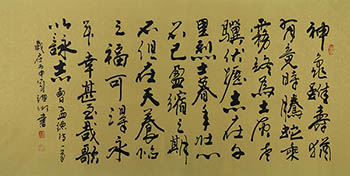 神龜雖壽猶
有竟時騰蛇乘
霧終為土灰老
驥伏櫪志在千
里烈士暮年壯心
不已盈縮之期
不但在天養怡
之福可得永
年幸甚至哉歌
以詠志 曹孟德詩一首
歲在丙申 書